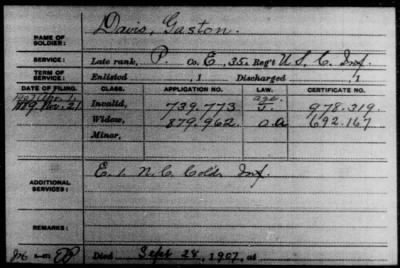 NAME OF SOLDIER: Davis, Gaston.
SERVICE: Late rank, P. Co. E, 35. Reg't U.S.C. Inf.
TERM OF SERVICE: Enlisted , 1 Discharged , 1
DATE OF FILING. CLASS. APPLICATION NO. LAW. CERTIFICATE NO.
Invalid, 739.773 age J. 978.319.
Nov. 21 Widow, 879.962 O.A 692.167
Minor,
ADDITIONAL SERVICES: E. 1. N.C. Cold. Inf.
REMARKS:
Died Sept 28, 1907, at